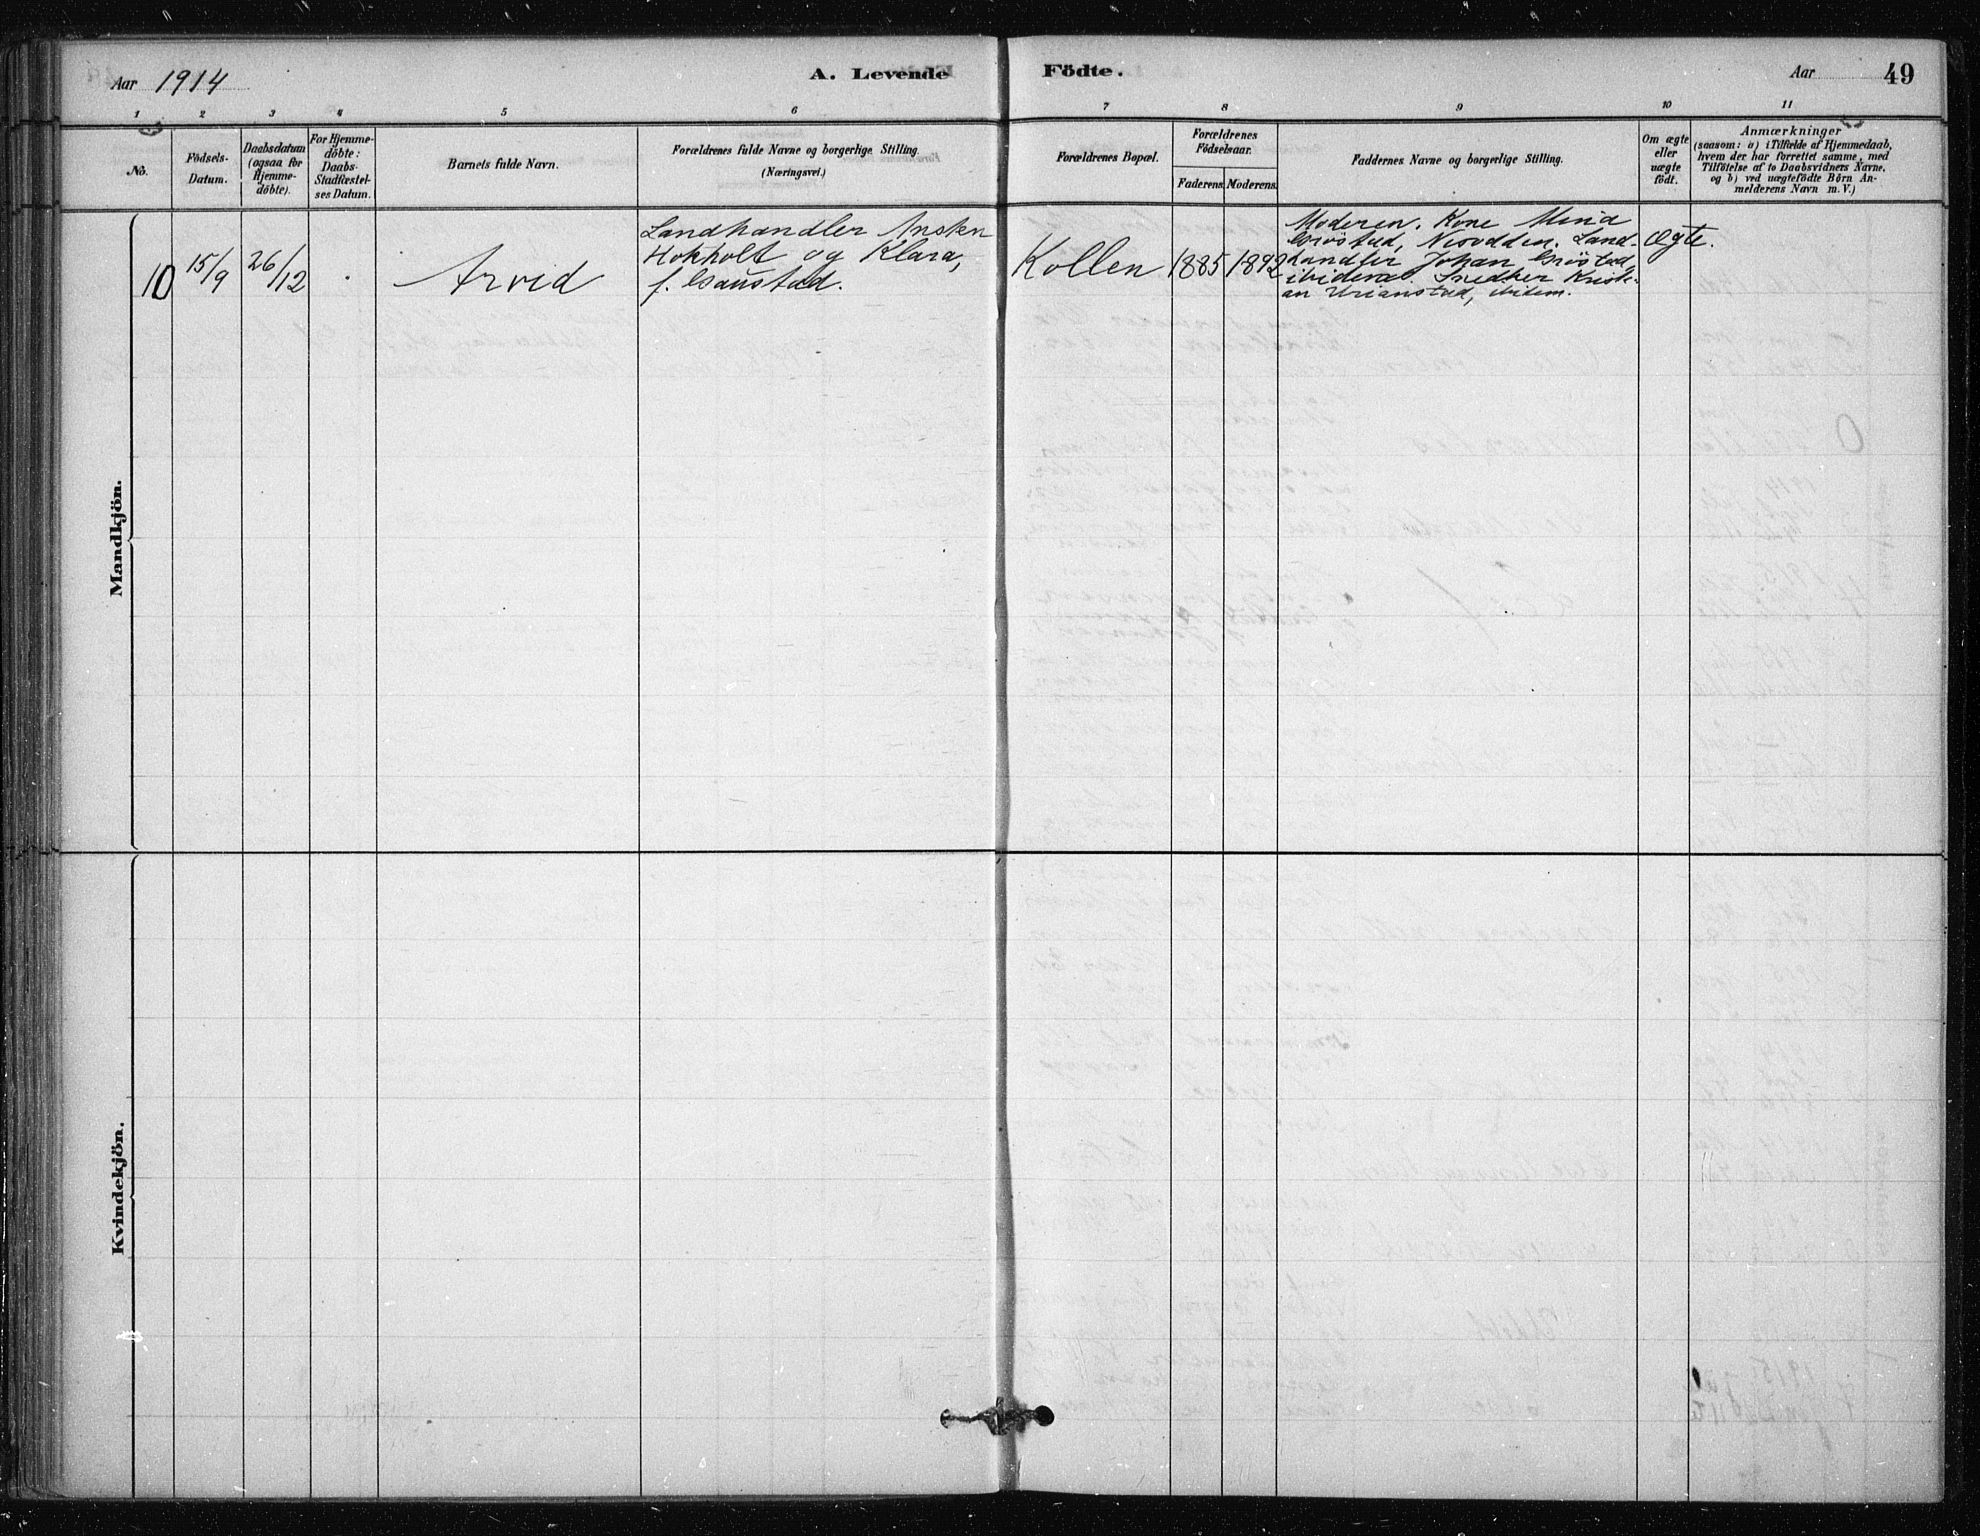 Aar 1914
A. Levende
Födte.
Aar
49
1 2 3 4 5 6 7 8 9 10 11
No.
Födsels-
Datum.
Daabsdatum
(ogsaa for
Hjemme-
döbte).
For Hjemme-
döbte:
Daabs-
Stadfæstel-
ses Datum.
Barnets fulde Navn.
Forældrenes fulde Navne og borgerlige Stilling.
(Næringsvei.)
Forældrenes Bopæl.
Forældrenes
Födselsaar.
Faderens.
Moderens.
Faddernes Navne og borgerlige Stilling.
Om ægte
eller
uægte
födt.
Anmærkninger
(saasom: a) i Tilfælde af Hjemmedaab,
hvem der har forrettet samme, med
Tilföielse af to Daabsvidners Navne,
og b) ved uægtefödte Börn An-
melderens Navn m. V.)
Mandkjön.
10
15/9
26/12
Arvid
Landhandler Ansten
Hokholt og Klara,
f. Gaustad.
Kollen
1885
1892
Moderen. Kone
Grøstad, Nesodden. Land-
handler Johan Grøstad,
ibidem. Snedker Kristi-
an Urianstad, ibidem.
Ægte.
Kvindekjön.